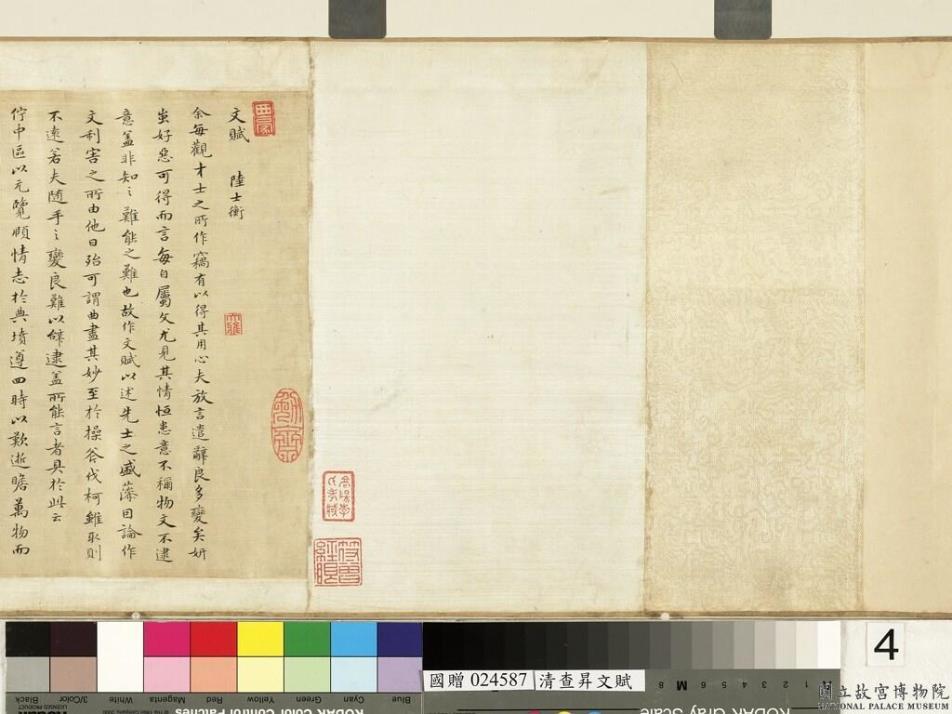 文賦 陸士衡
余每觀才士之所作竊有以得其用心夫放言遣辭良多變矣妍
蚩好惡可得而言每自屬文尤見其情恒患意不稱物文不逮
意盖非知之難能之難也故作文賦以述先士之盛藻因論作
文利害之所由他日殆可謂曲盡其妙至於操斧伐柯雖取則
不遠若夫隨手之變良難以辭逮盖所能言者具於此云
佇中區以元覽頤情志於典墳遵四時以歎逝瞻萬物而
Blue Cyan Green Yellow Red Magenta White 3/Color Black
KODAK Color Control Patches
國贈 024587 清查昇文賦
KODAK Gray Scale
4
國立故宮博物院
NATIONAL PALACE MUSEUM